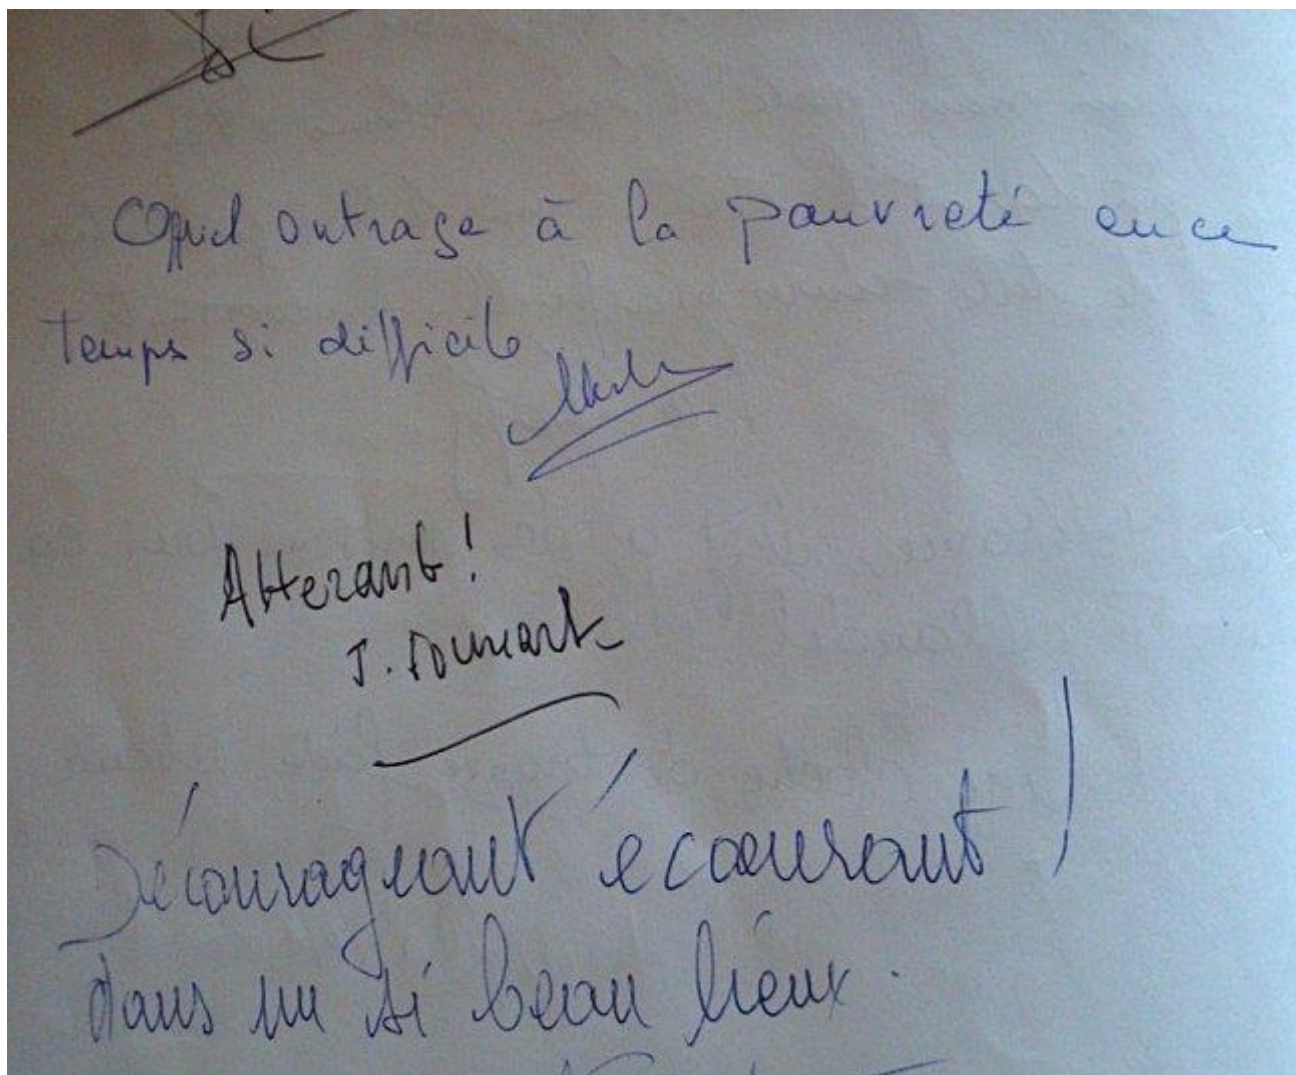 Quel outrage à la pauvreté en ce
temps si difficile
Atterant!
J.
Décourageant écoeurant!
dans un si beau lieux.